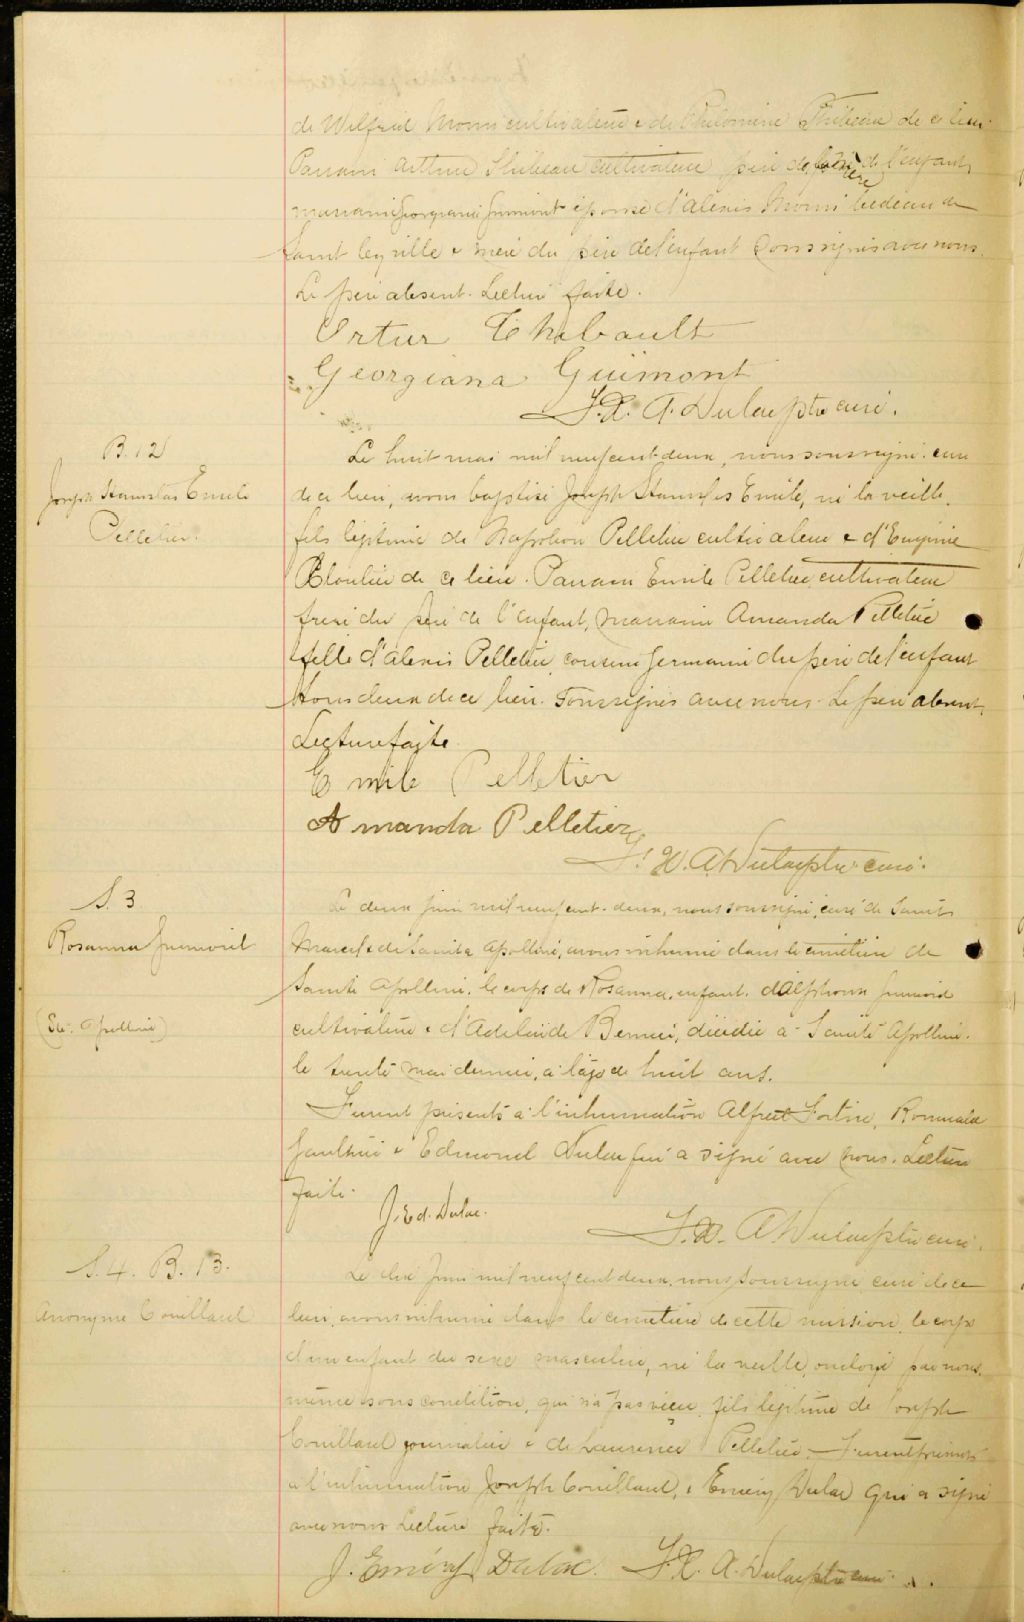 de Wilfrid Morin cultivateur & de Philomène Thibeau de ce lieu.
Parrain Arthur Thibeau cultivateur, père de la mère de l'enfant,
marraine Georgiana Guimont épouse d'Alexis Morin bedeau de
Saint & mère du père de l'enfant soussignés avec nous.
Le père absent. Lecture faite.
Ortur Thibault
Georgiana Guimont
F.X. A. Dulac ptre curé.
B. 12
Joseph Stanislas Emile
Pelletier.
Le huit mai mil neuf cent deux, nous soussigné, curé
de ce lieu, avons baptisé Joseph Stanislas Emile, né la veille,
fils légitime de Napoléon Pelletier cultivateur & d'Eugénie
Cloutier de ce lieu. Parrain Emile Pelletier cultivateur
frère du père de l'enfant, marraine Amanda Pelletier
fille d'Alexis Pelletier, cousine germaine du père de l'enfant
tous deux de ce lieu. Soussignés avec nous. Le père absent.
Lecture faite.
Emile Pelletier
Amanda Pelletier
F.X. A. Dulac ptre curé.
S. 3
Rosanna Guimond
(Ste. Apolline)
Le deux juin mil neuf cent deux, nous soussigné, curé de Saint
Marcel & de Sainte Apolline, avons inhumé dans le cimetière de
Sainte Apolline, le corps de Rosanna, enfant d'Alphonse Guimond
cultivateur & d'Adelaide Bernier, décédée à Sainte Apolline
le trente mai dernier, à l'âge de huit ans.
Furent présents à l'inhumation Alfred Fortin, Romuald
Gaulthier & Edmond Dulac qui a signé avec nous. Lecture
faite.
J. Ed. Dulac.
F.X. A Dulac ptre curé.
S. 4. B. 13.
Anonyme Couillard
Le dix Juin mil neuf cent deux, nous soussigné curé de ce
lieu, avons inhumé dans le cimetière de cette mission, le corps
d'un enfant du sexe masculin, né la veille, ondoyé par nous
même sous condition, qui n'a pas vécu, fils légitime de Joseph
Couillard journalier & de Laurence Pelletier. Furent présents
à l'inhumation Joseph Couillard, & Eméry Dulac qui a signé
avec nous Lecture faite.
J. Eméry Dulac. F.X. A. Dulac ptre curé.